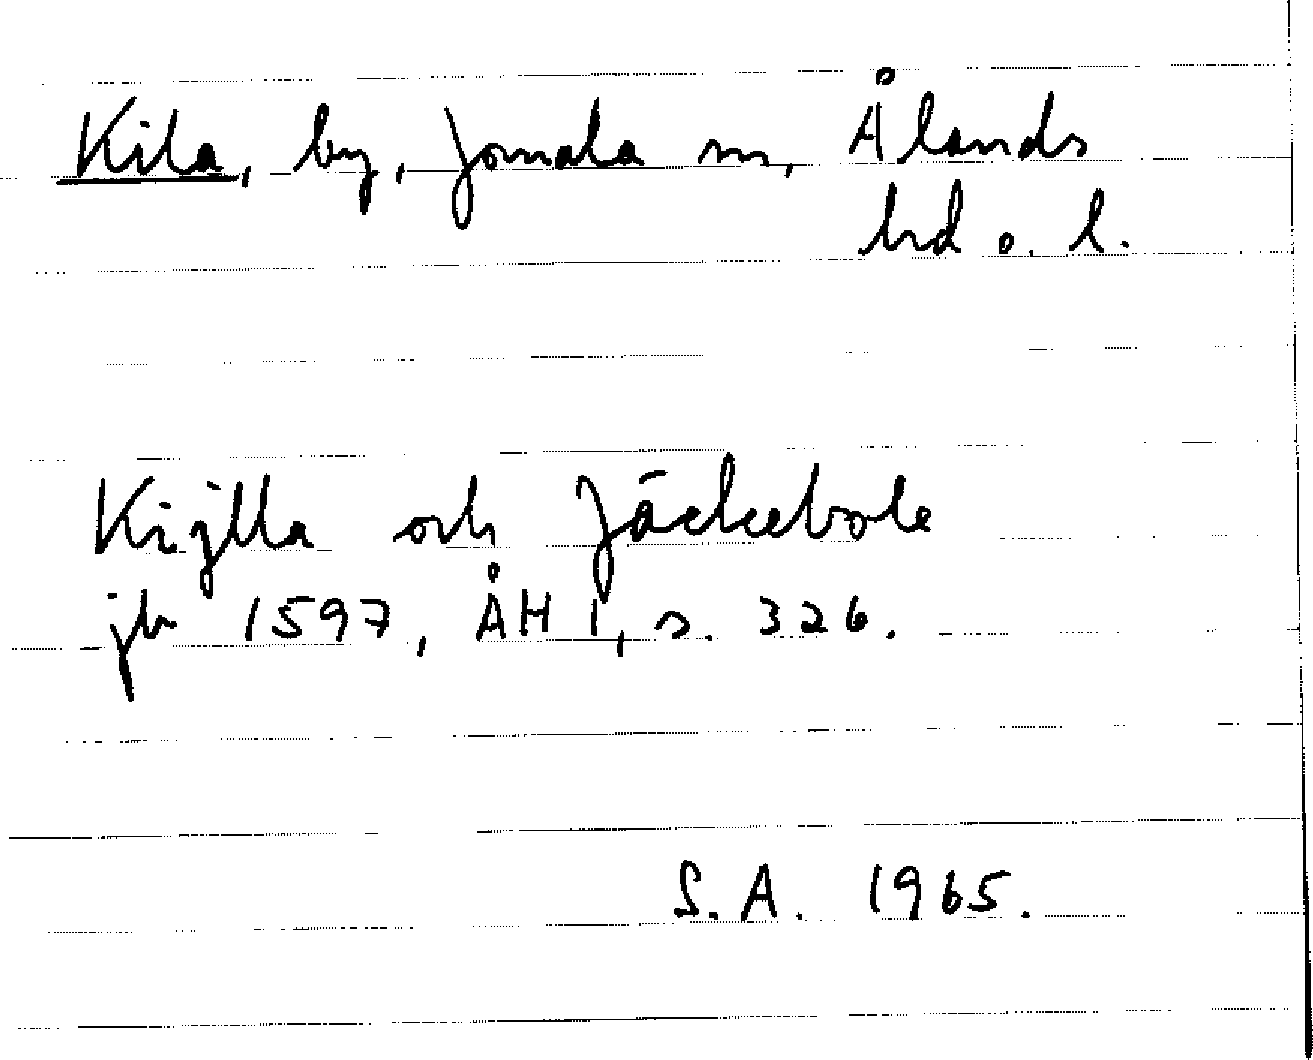 Kila, by, Jomala sn, Ålands
hd o. l.
Kijlla och Jäckebole
jb 1597, ÅH 1, s. 326.
S.A. 1965.